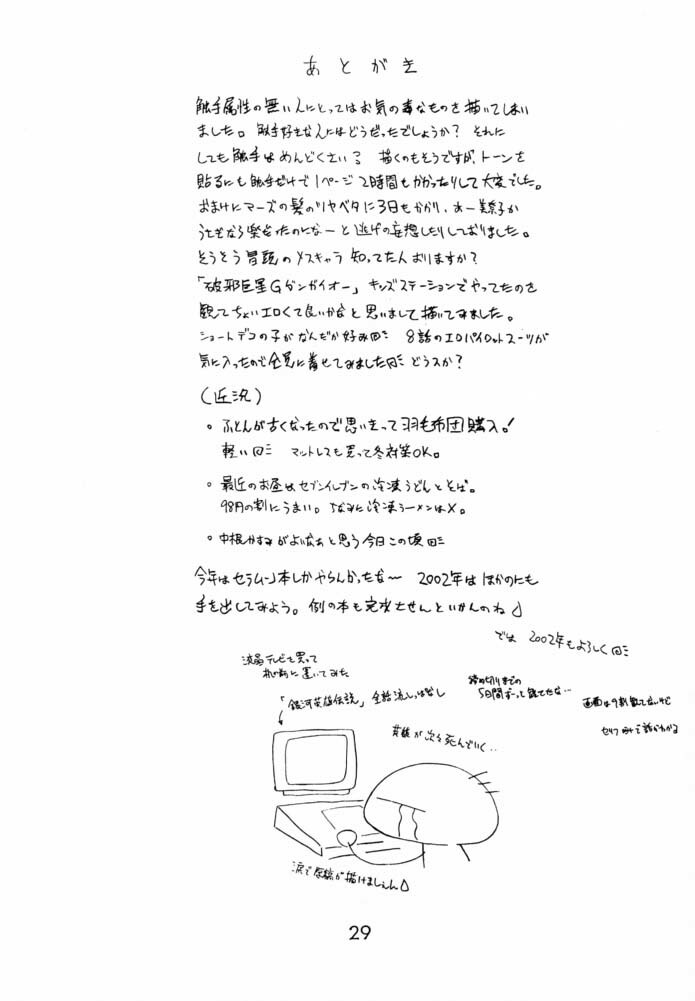 あとがき
触手属性の無い人にとってはお気の毒なものを描いてしまい
ました。触手好きな人にはどうだったでしょうか？それに
しても触手はめんどくさい？描くのもそうですが、トーンを
貼るにも触手だけで1ページ2時間もかかったりして大変でした。
おまけにマーズの髪のツヤベタに3日もかかり、あー美奈子か
うさぎなら楽だったのになーと逃げの妄想したりしておりました。
そうそう冒頭のメスキャラ知ってた人おりますか？
「破邪巨星Gダンガイオー」キッズステーションでやってたのを
観てちょいエロくて良いかなと思いまして描いてみました。
ショートデコの子がなんだか好み 8話のエロパイロットスーツが
気に入ったので全員に着せてみました どうスか？
（近況）
。ふとんが古くなったので思いきって羽毛布団購入！
軽い マットレスも買って冬対策OK。
。最近のお昼はセブンイレブンの冷凍うどんとそば。
98円の割にうまい。ちなみに冷凍ラーメンは×。
。中根かすみがよいなぁと思う今日この頃
今年はセラムン本しかやらんかったな〜 2002年はほかのにも
手を出してみよう。例の本も完成させんといかんのね
では 2002年もよろしく
液晶テレビを買って
机の前に置いてみた
「銀河英雄伝説」全話流しっぱなし
締め切りまでの
5日間ずーっと観てたな…
画面は9割観てないけど
セリフだけで話がわかる
英雄が次々死んでいく‥
涙で原稿が描けましぇん
29